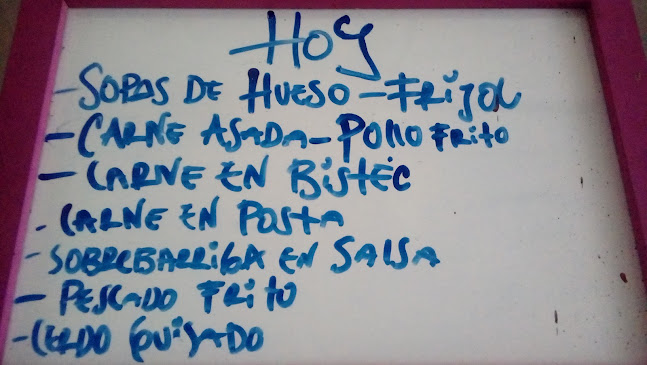 Hoy
- SOPAS DE HUESO - FRIJOL
- CARNE ASADA - POLLO FRITO
- CARNE EN BISTEC
- CARNE EN POSTA
- SOBREBARRIGA EN SALSA
- PESCADO FRITO
- CERDO GUISADO